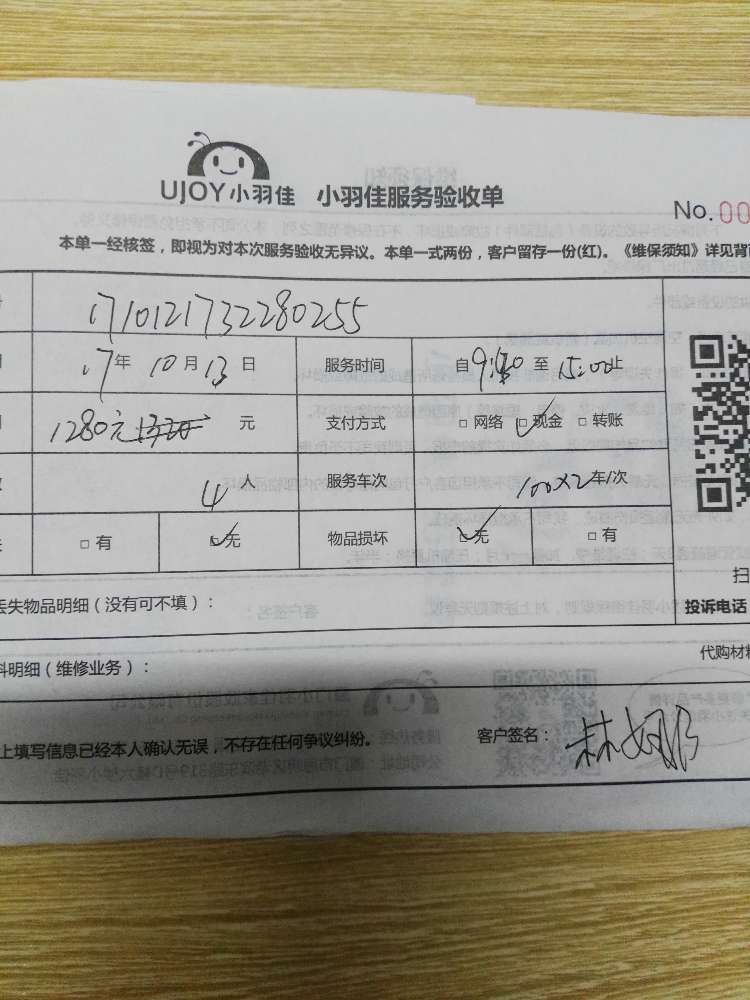 UJOY小羽佳 小羽佳服务验收单
No.00
本单一经核签，即视为对本次服务验收无异议。本单一式两份，客户留存一份(红)。《维保须知》详见背
1710121732280255
17年 10月13日 服务时间 自 至 15:00止
1280元 元 支付方式 □网络 ☑现金 □转账
4人 服务车次 100×2车/次
□有 ☑无 物品损坏 ☑无 □有
丢失物品明细（没有可不填）：
扫
投诉电话
料明细（维修业务）：
代购材料
上填写信息已经本人确认无误，不存在任何争议纠纷。 客户签名：